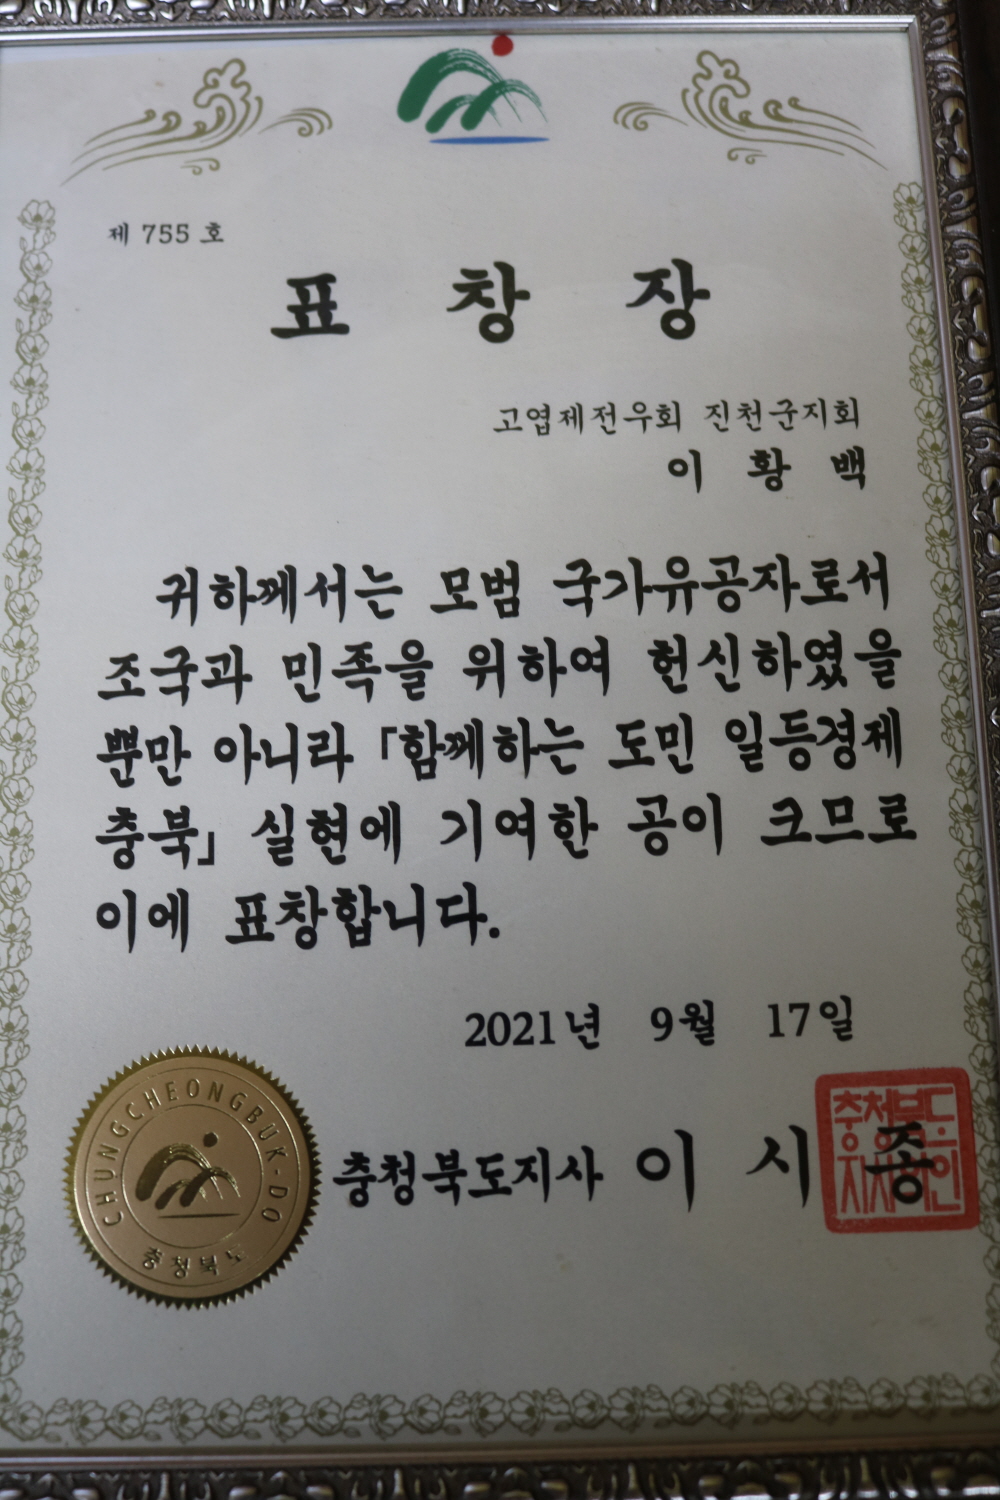 제 755 호
표 창 장
고엽제전우회 진천군지회
이 황 백
귀하께서는 모범 국가유공자로서
조국과 민족을 위하여 헌신하였을
뿐만 아니라 「함께하는 도민 일등경제
충북」 실현에 기여한 공이 크므로
이에 표창합니다.
2021년 9월 17일
충청북도지사 이 시 종
충청북도
지사의인
CHUNGCHEONGBUK-DO
충청북도